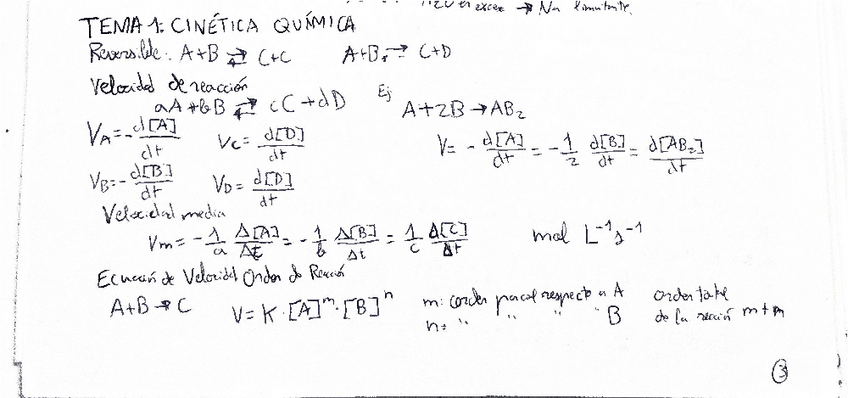 H2O en exceso → No limitante.
TEMA 1: CINÉTICA QUÍMICA
Reversible: A+B ⇄ C+C    A+B ⇄ C+D
Velocidad de reacción
aA+bB ⇄ cC+dD    Ej    A+2B → AB₂
V_A = -d[A]/dt    V_C = d[D]/dt    V = -d[A]/dt = -1/2 d[B]/dt = d[AB₂]/dt
V_B = -d[B]/dt    V_D = d[D]/dt
Velocidad media
Vm = -1/a Δ[A]/Δt = -1/b Δ[B]/Δt = 1/c Δ[C]/Δt    mol L⁻¹s⁻¹
Ecuación de Velocidad Orden de Reacción
A+B → C    V = K·[A]^m·[B]^n    m: orden parcial respecto a A    orden total
n = " " " " B    de la reación m+n
3